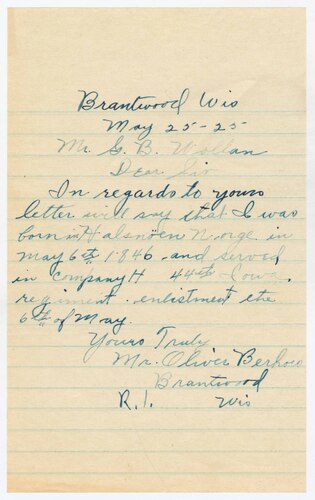 Brantwood Wis
May 25-25
Mr. G. B. Wollan
Dear Sir
In regards to yours
letter will say that I was
born in Halsnöen Norge in
May 6th 1846 and served
in Company H 44th Iowa
regiment. enlistment the
6th of May.
Yours Truly
Mr. Oliver Berhow
Brantwood
R. 1. Wis